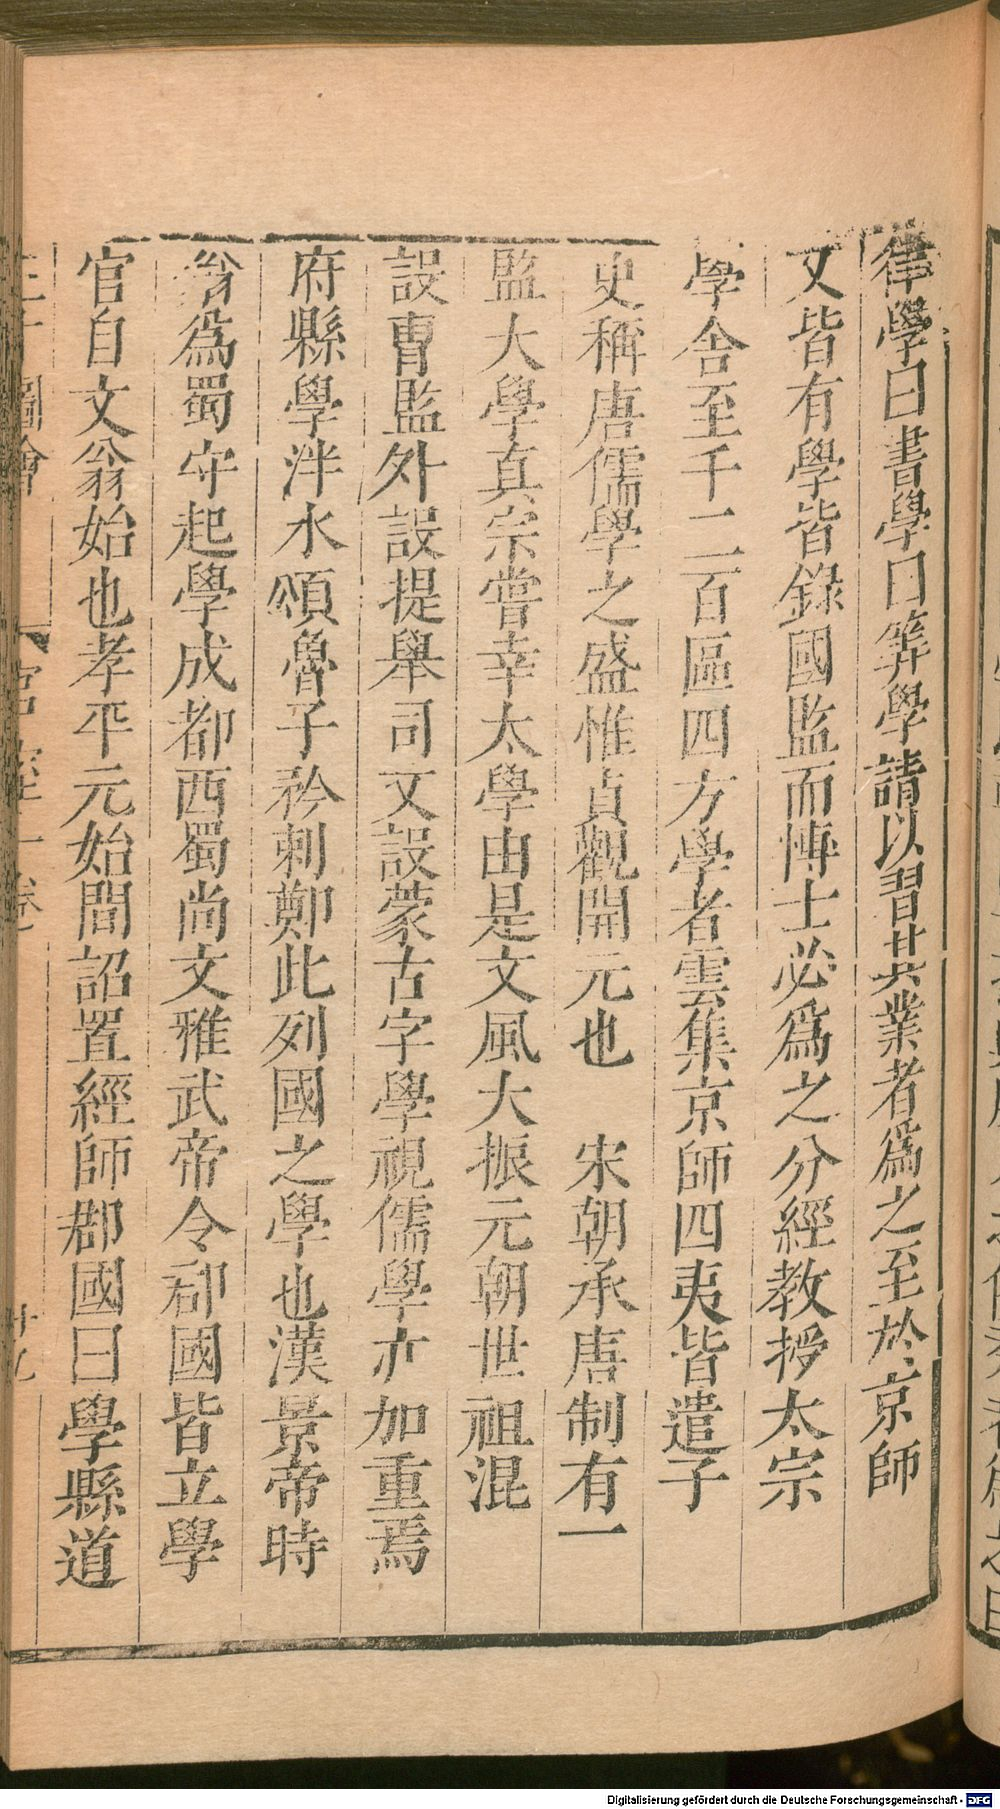 律學曰書學曰筭學請以習其業者爲之至於京師
文皆有學皆錄國監而愽士必爲之分經教授太宗
學舍至千二百區四方學者雲集京師四夷皆遣子
史稱唐儒學之盛惟貞觀開元也　宋朝承唐制有一
監大學真宗嘗幸太學由是文風大振元朝世祖混
設曹監外設提舉司文設蒙古字學視儒學亦加重焉
府縣學泮水頌魯子衿刺鄭此列國之學也漢景帝時
翁爲蜀守起學成都西蜀尚文雅武帝令郡國皆立學
官自文翁始也孝平元始間詔置經師郡國曰學縣道
圖會
Digitalisierung gefördert durch die Deutsche Forschungsgemeinschaft - DFG